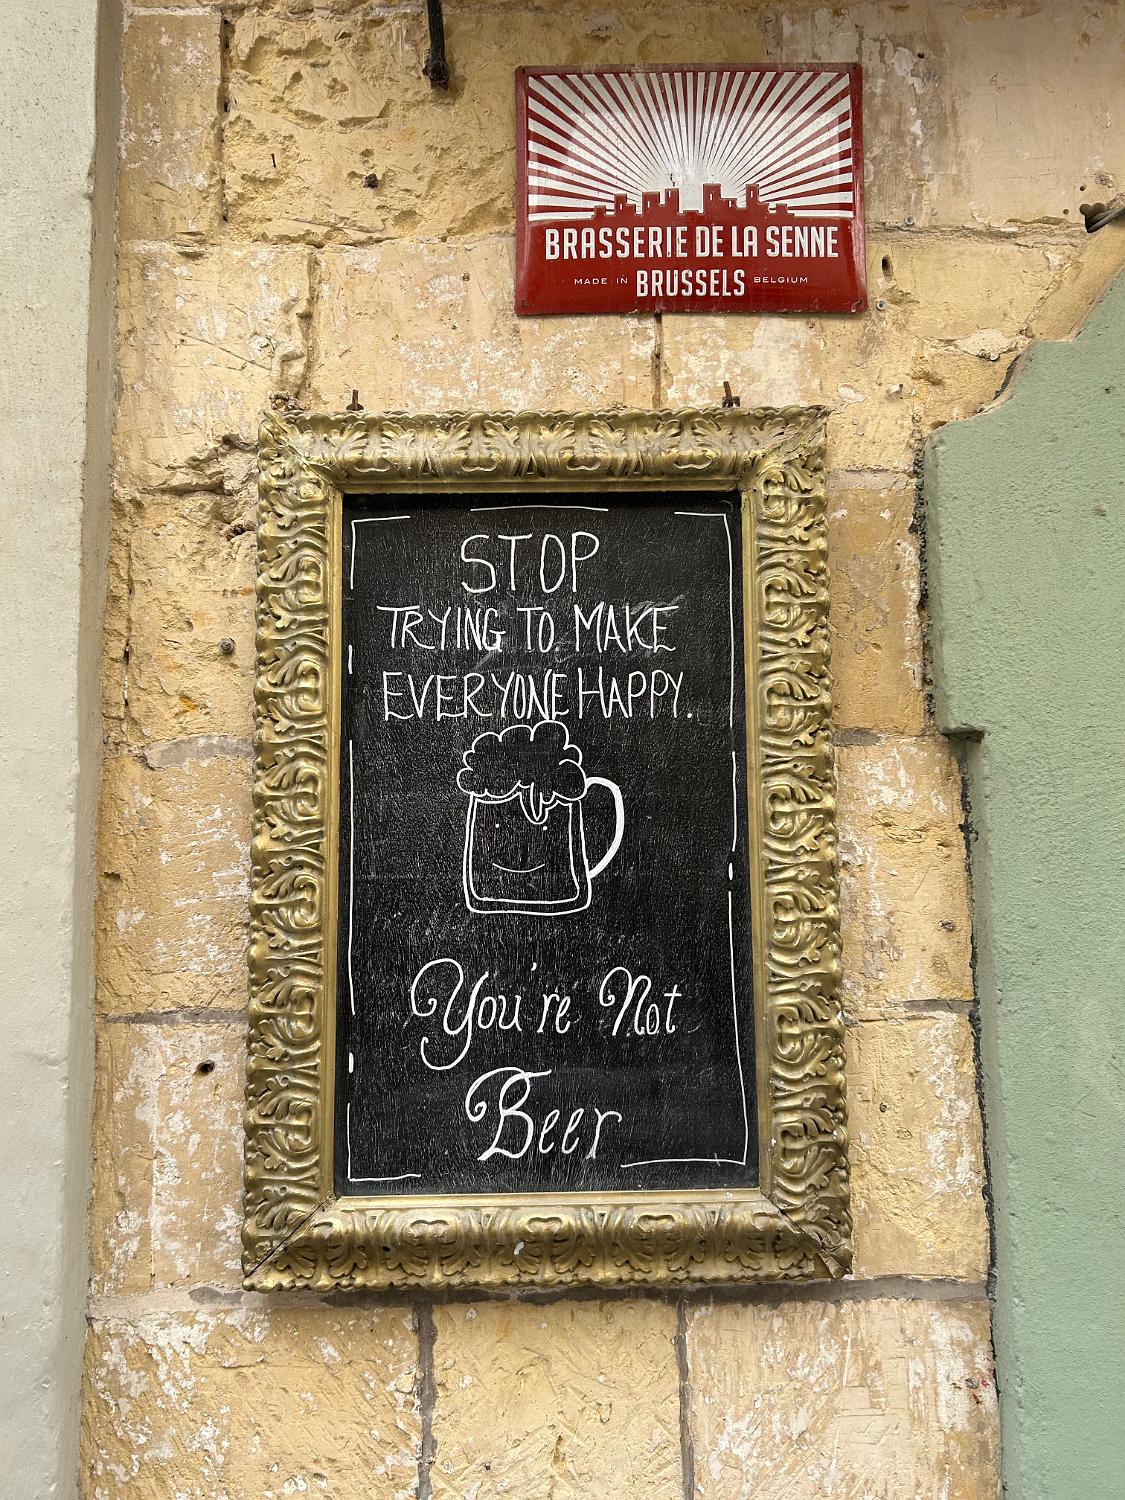 BRASSERIE DE LA SENNE
MADE IN BRUSSELS BELGIUM
STOP
TRYING TO MAKE
EVERYONE HAPPY.
You're Not
Beer